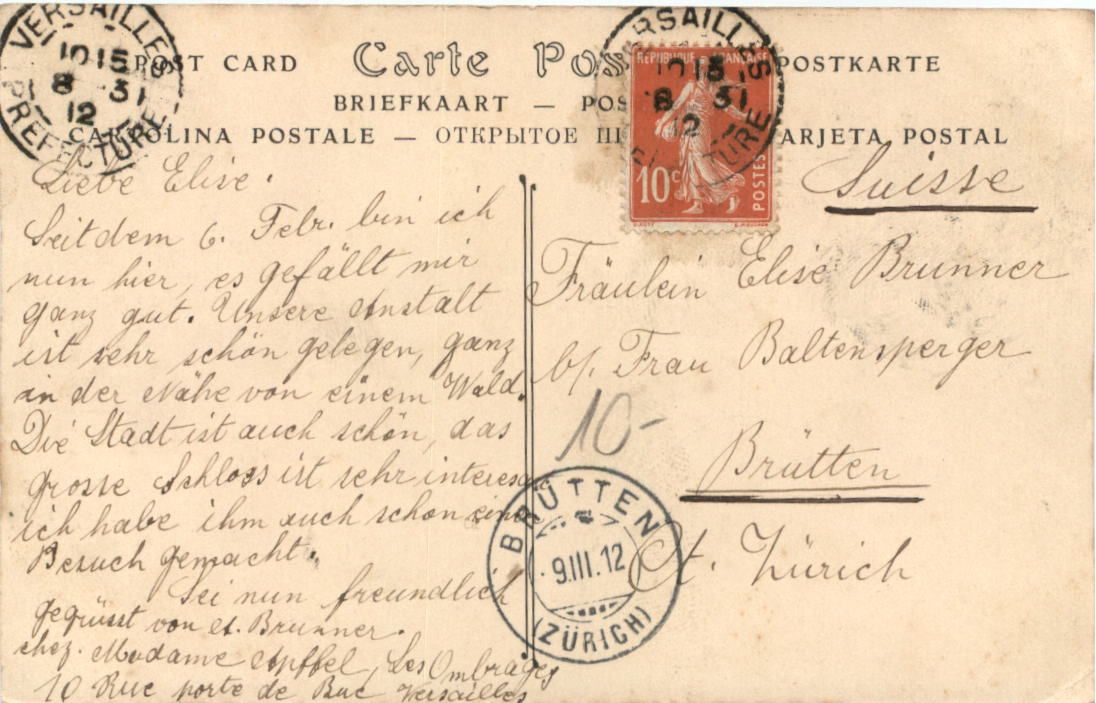 VERSAILLES
10 15
8 - 3
12
PREFECTURE
POST CARD Carte Pos POSTKARTE
BRIEFKAART — POS
CARTOLINA POSTALE — ОТКРЫТОЕ ПИ TARJETA POSTAL
VERSAILLES
10 15
8 - 3
12
PREFECTURE
REPUBLIQUE FRANÇAISE
10c
POSTES
Liebe Elise.
Seitdem 6. Febr. bin ich
nun hier, es gefällt mir
ganz gut. Unsere Anstalt
ist sehr schön gelegen, ganz
in der Nähe von einem Wald.
Die Stadt ist auch schön, das
grosse Schloss ist sehr interess
ich habe ihm auch schon eine
Besuch gemacht.
Sei nun freundlich
gegrüsst von A. Brunner.
chez. Madame Apffel, Les Ombrages
10 Rue porte de Buc Versailles
Suisse
Fräulein Elise Brunner
b/ Frau Baltensperger
10-
Brütten
Kt. Zürich
BRÜTTEN
9.III.12
(ZÜRICH)